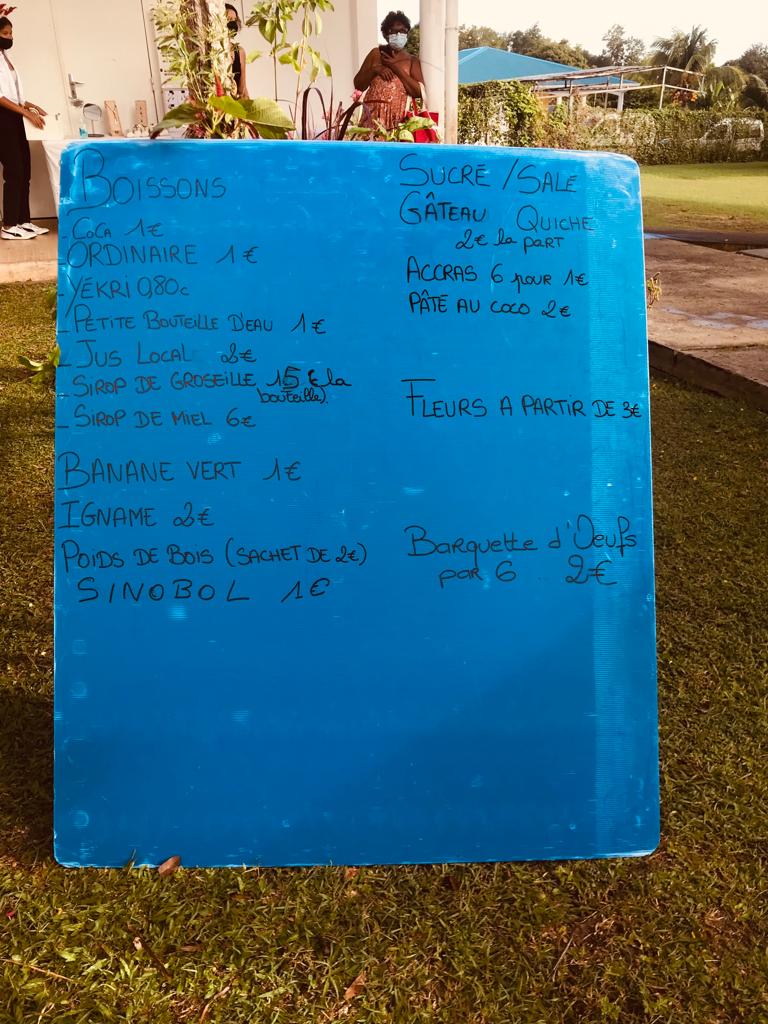 BOISSONS
- COCA 1€
- ORDINAIRE 1€
- YÉKRI 0,80c
- PETITE BOUTEILLE D'EAU 1€
- JUS LOCAL 2€
- SIROP DE GROSEILLE 15€ la
bouteille)
- SIROP DE MIEL 6€
BANANE VERT 1€
IGNAME 2€
POIDS DE BOIS (SACHET DE 2€)
SINOBOL 1€
SUCRÉ / SALÉ
GÂTEAU QUICHE
2€ la PART
ACCRAS 6 pour 1€
PÂTÉ AU COCO 2€
FLEURS A PARTIR DE 3€
Barquette d'Oeufs
par 6 .. 2€